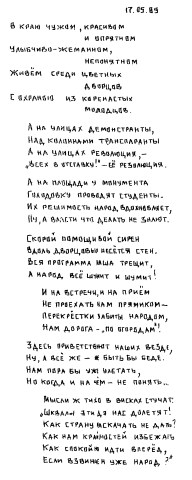 17.05.89
В краю чужом, красивом
и опрятном
Улыбчиво-жеманном,
непонятном
Живём среди цветных
дворцов
С охраною из коренастых
молодцов.
А на улицах демонстранты,
Над колоннами транспаранты
А на улицах революция, –
„Всех в отставку!" – её резолюция.
А на площади у монумента
Голодовку проводят студенты.
Их решимость народ вдохновляет,
Ну, а власти что делать не знают.
Скорой помощи вой сирен
Вдоль дворцовых несётся стен.
Вся программа наша трещит,
А народ всё шумит и шумит!
И на встречи, и на приём
Не проехать нам прямиком –
Перекрёстки забиты народом,
Нам дорога – „по огородам"!
Здесь приветствуют наших везде,
Ну, а всё же – быть бы беде.
Нам пора бы уж улетать,
Но когда и на чём – не понять...
Мысли ж тихо в висках стучат:
„Шквалы эти до нас долетят!
Как страну раскачать не дать?
Как нам крайностей избежать
Как спокойно идти вперёд,
Если взвинчен уже народ?"